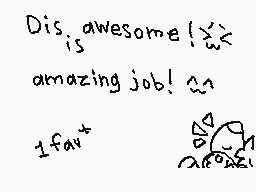 Dis is awesome! >w<
amazing job! ^w^
1 fav+